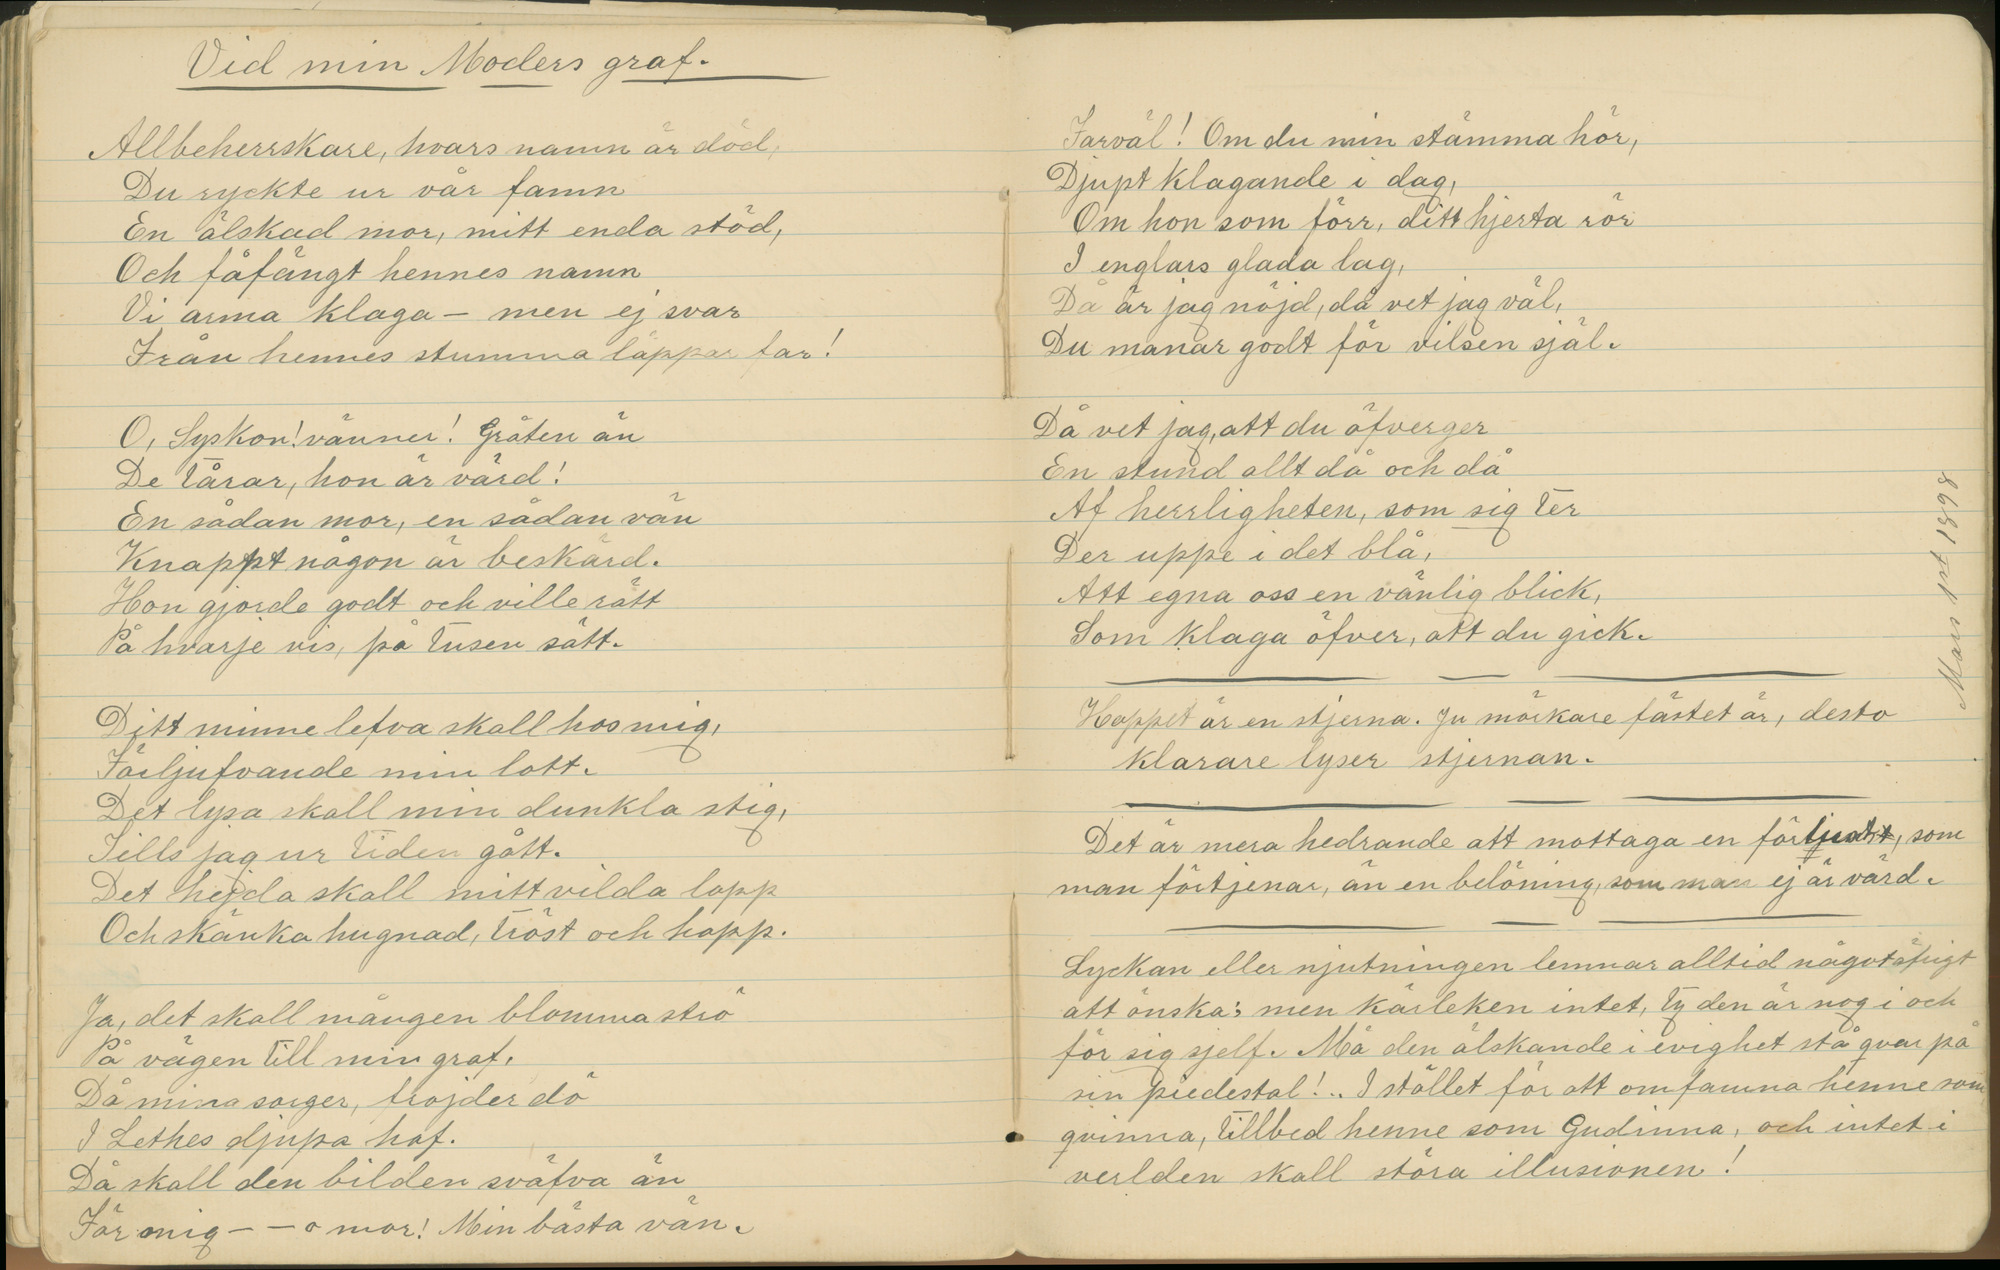 Vid min Moders graf.
Allbeherrskare, hvars namn är död,
Du ryckte ur vår famn
En älskad mor, mitt enda stöd,
Och fåfängt hennes namn
Vi arma klaga – men ej svar
Från hennes stumma läppar far!
O, Syskon! vänner! Gråten än
De tårar, hon är värd!
En sådan mor, en sådan vän
Knappt någon är beskärd.
Hon gjorde godt och ville rätt
På hvarje vis, på tusen sätt.
Ditt minne lefva skall hos mig,
Förljufvande min lott.
Det lysa skall min dunkla stig,
Tills jag ur tiden gått.
Det hejda skall mitt vilda lopp
Och skänka hugnad, tröst och hopp.
Ja, det skall mången blomma strö
På vägen till min graf.
Då mina sorger, fröjder dö
I Lethes djupa haf.
Då skall den bilden sväfva än
För mig – – o mor! Min bästa vän.
Farväl! Om du min stämma hör,
Djupt klagande i dag,
Om hon som förr, ditt hjerta rör
I englars glada lag,
Då är jag nöjd, då vet jag väl,
Du manar godt för vilsen själ.
Då vet jag, att du öfverger
En stund allt då och då
Af herrligheten, som sig ter
Der uppe i det blå,
Att egna oss en vänlig blick,
Som klaga öfver, att du gick.
Hoppet är en stjerna. Ju mörkare fästet är, desto
klarare lyser stjernan.
Det är mera hedrande att mottaga en förlust, som
man förtjenar, än en belöning, som man ej är värd.
Lyckan eller njutningen lemnar alltid något öfrigt
att önska; men kärleken intet, ty den är nog i och
för sig sjelf. Må den älskande i evighet stå qvar på
sin piedestal!.. I stället för att omfamna henne som
qvinna, tillbed henne som Gudinna, och intet i
verlden skall störa illusionen!
Mars 1st 1898